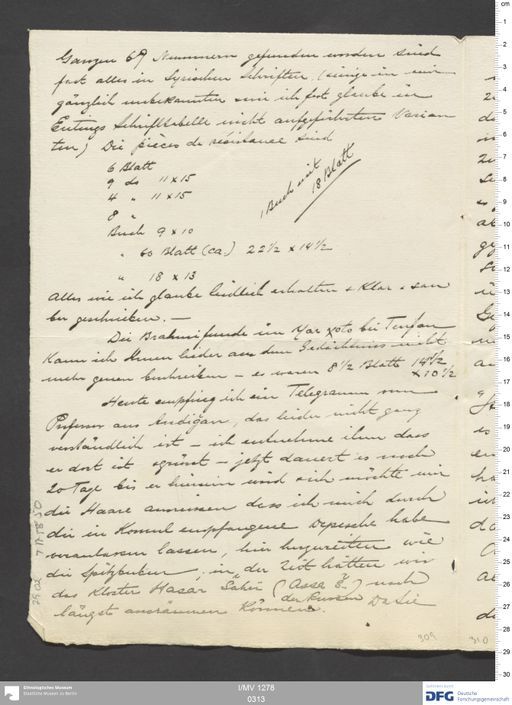 Ganzen 69 Nummern gefunden worden sind
fast alles in Syrischen Schriften, (einige in
gänzlich unbekannten wie ich fest glaube in
Eutings Schrifttabelle nicht aufgeführten Varian
ten) Die pièces de résistance sind
6 Blatt
9 do 11 x 15
4 " 11 x 15
8 "
Buch 9 x 10
" 60 Blatt (ca) 22 1/2 x 14 1/2
" 18 x 13
1 Buch mit
18 Blatt
Alles wie ich glaube leidlich erhalten & klar & sau
ber geschrieben. —
Die Brahmifunde in Xoto bei Turfan
kann ich Ihnen leider aus dem Gedächtniss nicht
mehr genau beschreiben — es waren 8 1/2 Blatt 14 1/2
x 10 1/2
Heute empfing ich ein Telegramm vom
Professor aus Andigan, das leider nicht ganz
verständlich ist — ich entnehme ihm dass
er dort ist — jetzt dauert es noch
20 Tage bis er hier und ich möchte mir
die Haare ausreissen dass ich mich durch
die in Komul empfangene Depesche habe
veranlassen lassen, hier herzureiten wie
die Spitzbuben; in der Zeit hätten wir
das Kloster Hasar (Assa) noch
längst ausräumen können.
der Russen Da Sie
309
310
I/MV 1278
0313
Ethnologisches Museum
Staatliche Museen zu Berlin
GEFÖRDERT DURCH
DFG Deutsche
Forschungsgemeinschaft
cm
1
2
3
4
5
6
7
8
9
10
11
12
13
14
15
16
17
18
19
20
21
22
23
24
25
26
27
28
29
30